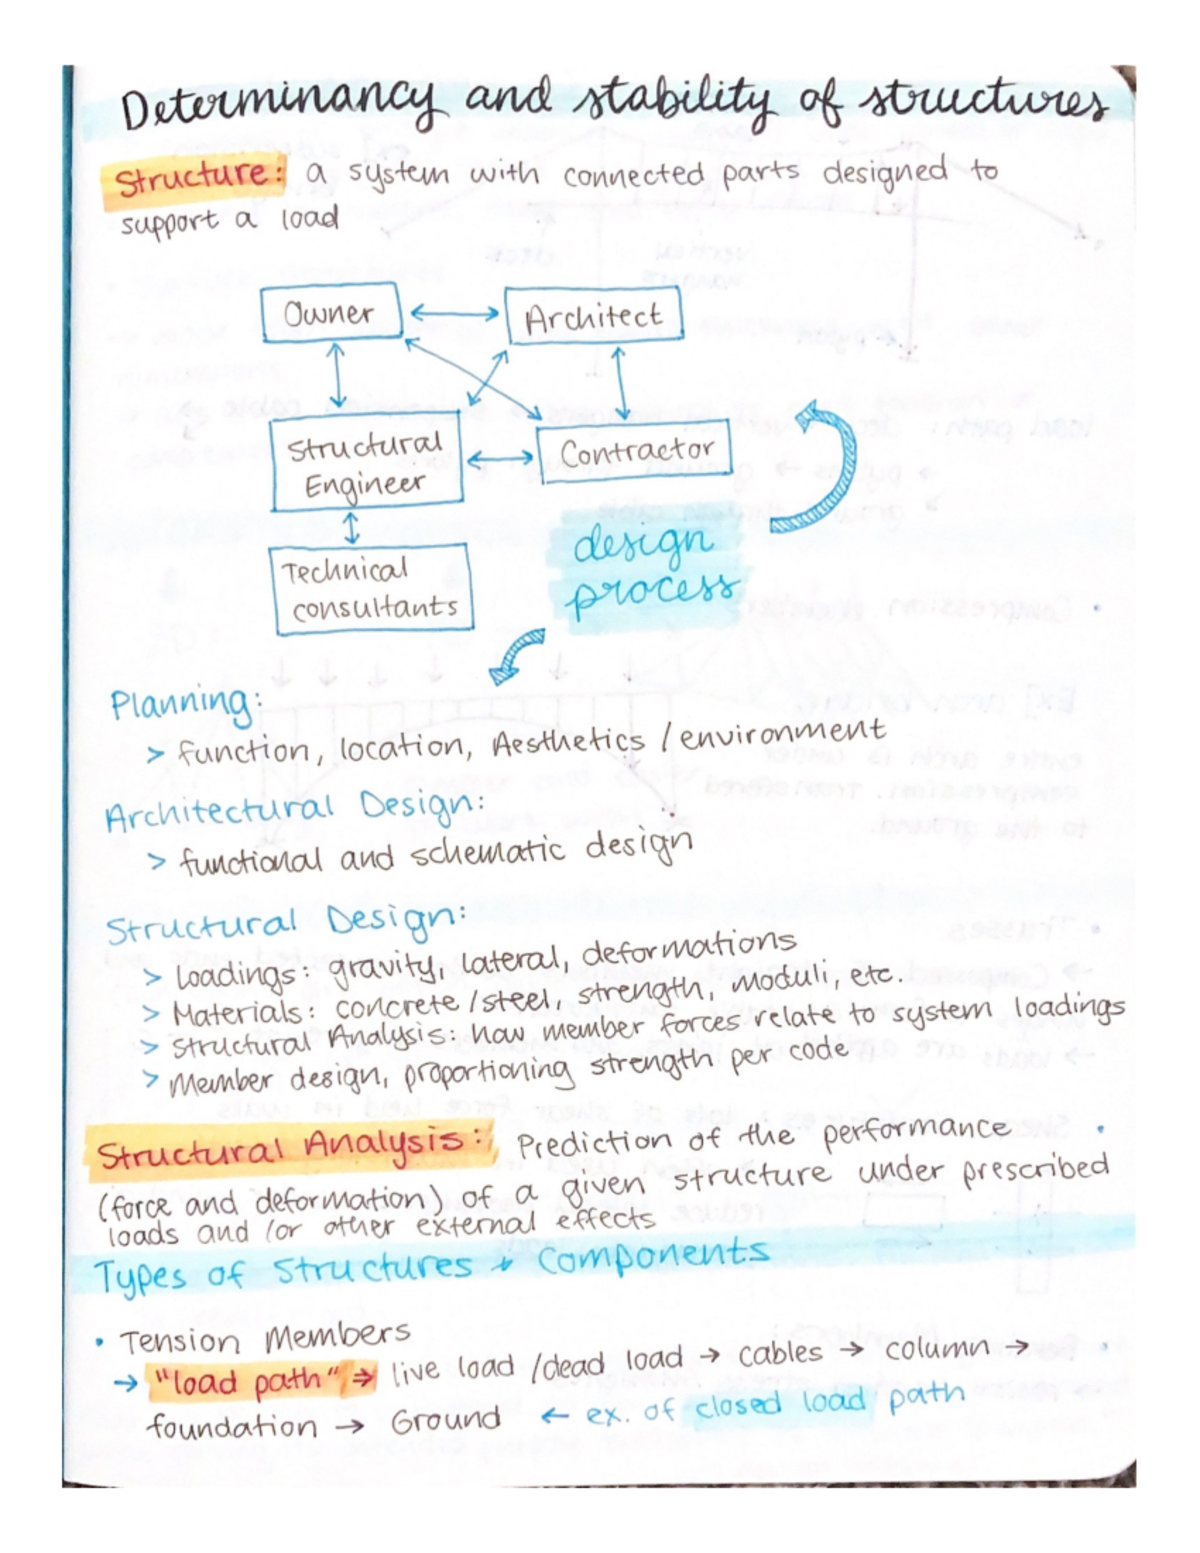 Determinancy and stability of structures
Structure: a system with connected parts designed to
support a load
Owner
Architect
Structural
Engineer
Contractor
Technical
consultants
design
process
Planning:
> function, location, Aesthetics / environment
Architectural Design:
> functional and schematic design
Structural Design:
> Loadings: gravity, lateral, deformations
> Materials: concrete / steel, strength, moduli, etc.
> Structural Analysis: how member forces relate to system loadings
> Member design, proportioning strength per code
Structural Analysis: Prediction of the performance
(force and deformation) of a given structure under prescribed
loads and /or other external effects
Types of Structures + Components
• Tension Members
→ "load path" ⇒ live load /dead load → cables → column →
foundation → Ground ← ex. of closed load path